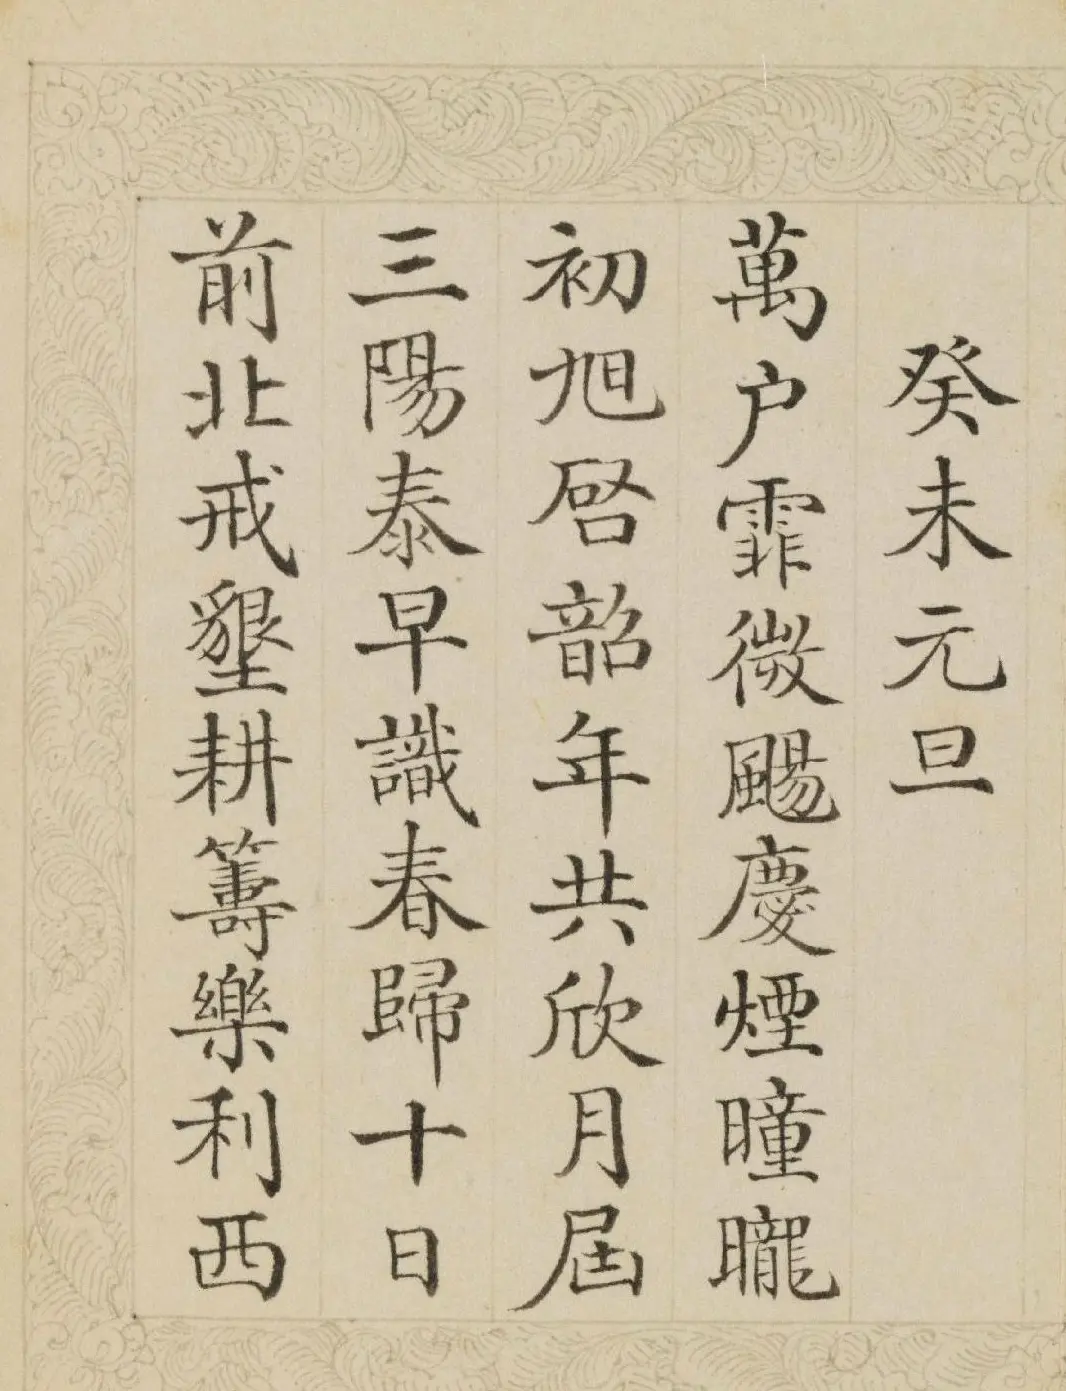 癸未元旦
萬户霏微颺慶煙曈曨
初旭啓韶年共欣月屆
三陽泰早識春歸十日
前北戒墾耕籌樂利西